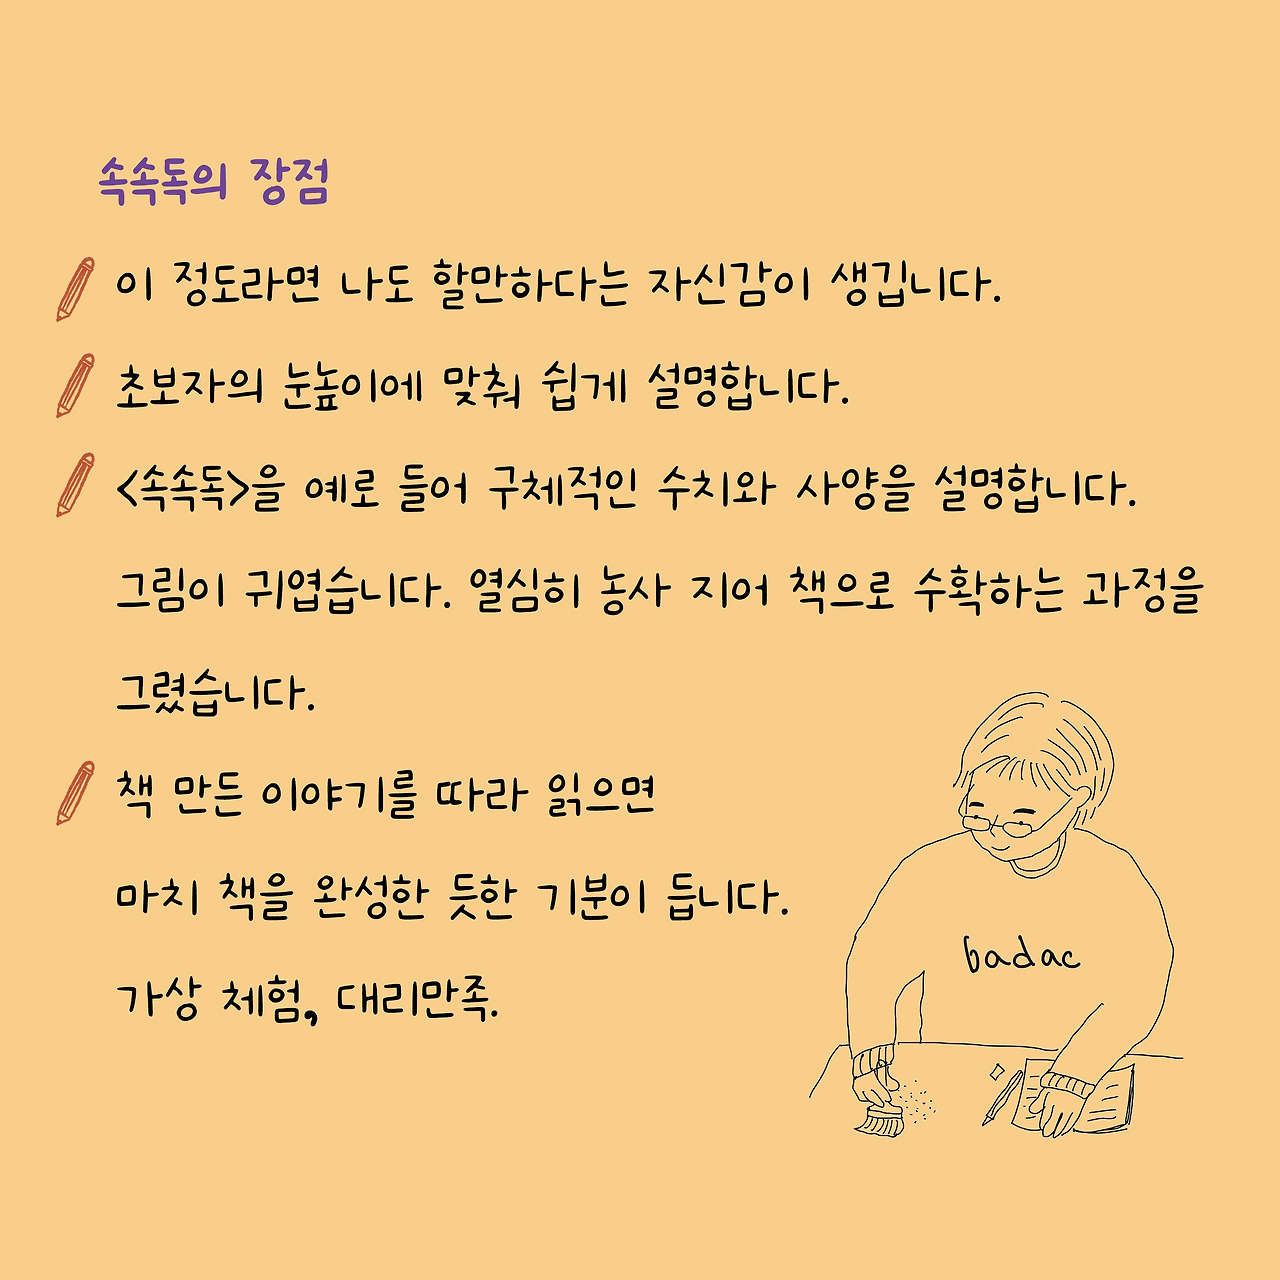 속속독의 장점
이 정도라면 나도 할만하다는 자신감이 생깁니다.
초보자의 눈높이에 맞춰 쉽게 설명합니다.
<속속독>을 예로 들어 구체적인 수치와 사양을 설명합니다.
그림이 귀엽습니다. 열심히 농사 지어 책으로 수확하는 과정을
그렸습니다.
책 만든 이야기를 따라 읽으면
마치 책을 완성한 듯한 기분이 듭니다.
가상 체험, 대리만족.
badac